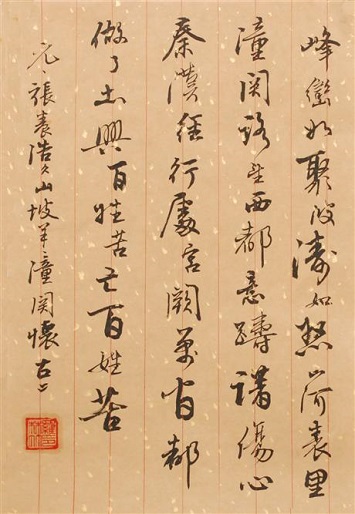 峰巒如聚波濤如怒山河表里
潼関路望西都意躊躇傷心
秦漢經行處宮闕萬間都
做了土興百姓苦亡百姓苦
元張養浩山坡羊潼関懷古